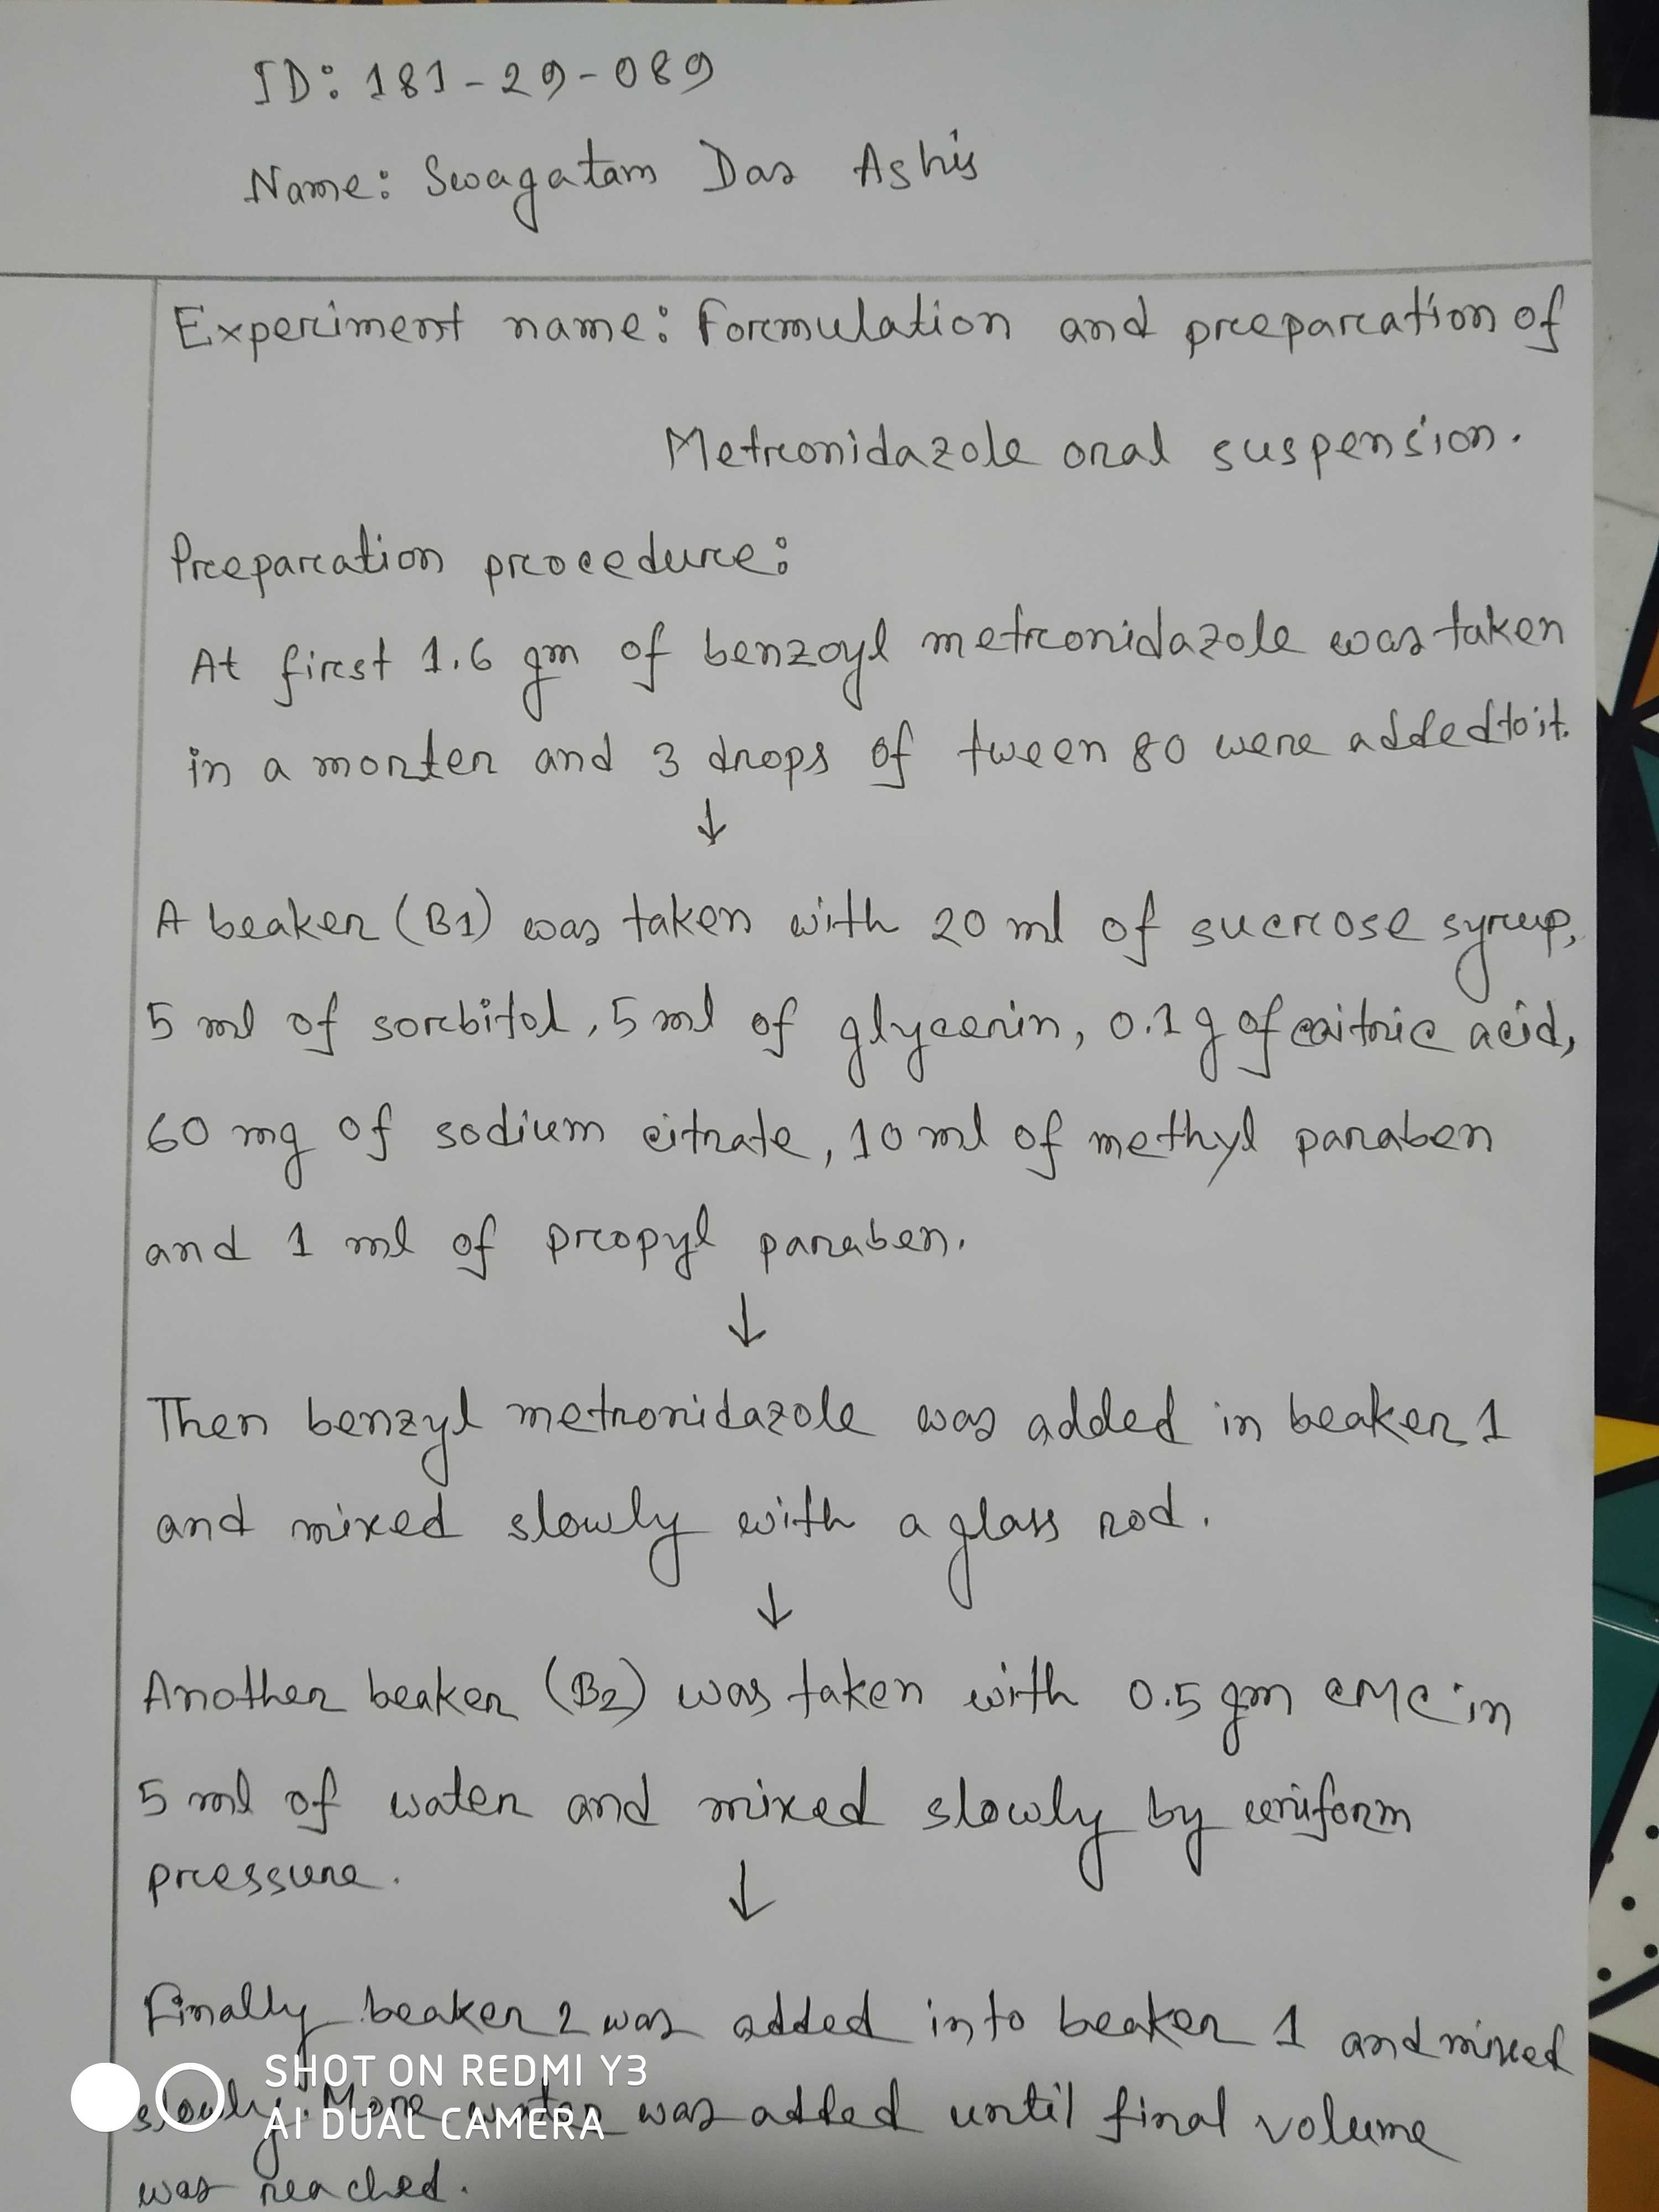 ID: 181-29-089
Name: Swagatam Das Ashis
Experiment name: Formulation and preparation of
Metronidazole oral suspension.
Preparation procedure:
At first 1.6 gm of benzoyl metronidazole was taken
in a morter and 3 drops of tween 80 were added to it.
↓
A beaker (B1) was taken with 20 ml of sucrose syrup,
5 ml of sorbitol, 5 ml of glycerin, 0.1 g of citric acid,
60 mg of sodium citrate, 10 ml of methyl paraben
and 1 ml of propyl paraben.
↓
Then benzyl metronidazole was added in beaker 1
and mixed slowly with a glass rod.
↓
Another beaker (B2) was taken with 0.5 gm CMC in
5 ml of water and mixed slowly by uniform
pressure.
↓
Finally beaker 2 was added into beaker 1 and mixed
slowly. More water was added until final volume
was reached.
SHOT ON REDMI Y3
AI DUAL CAMERA